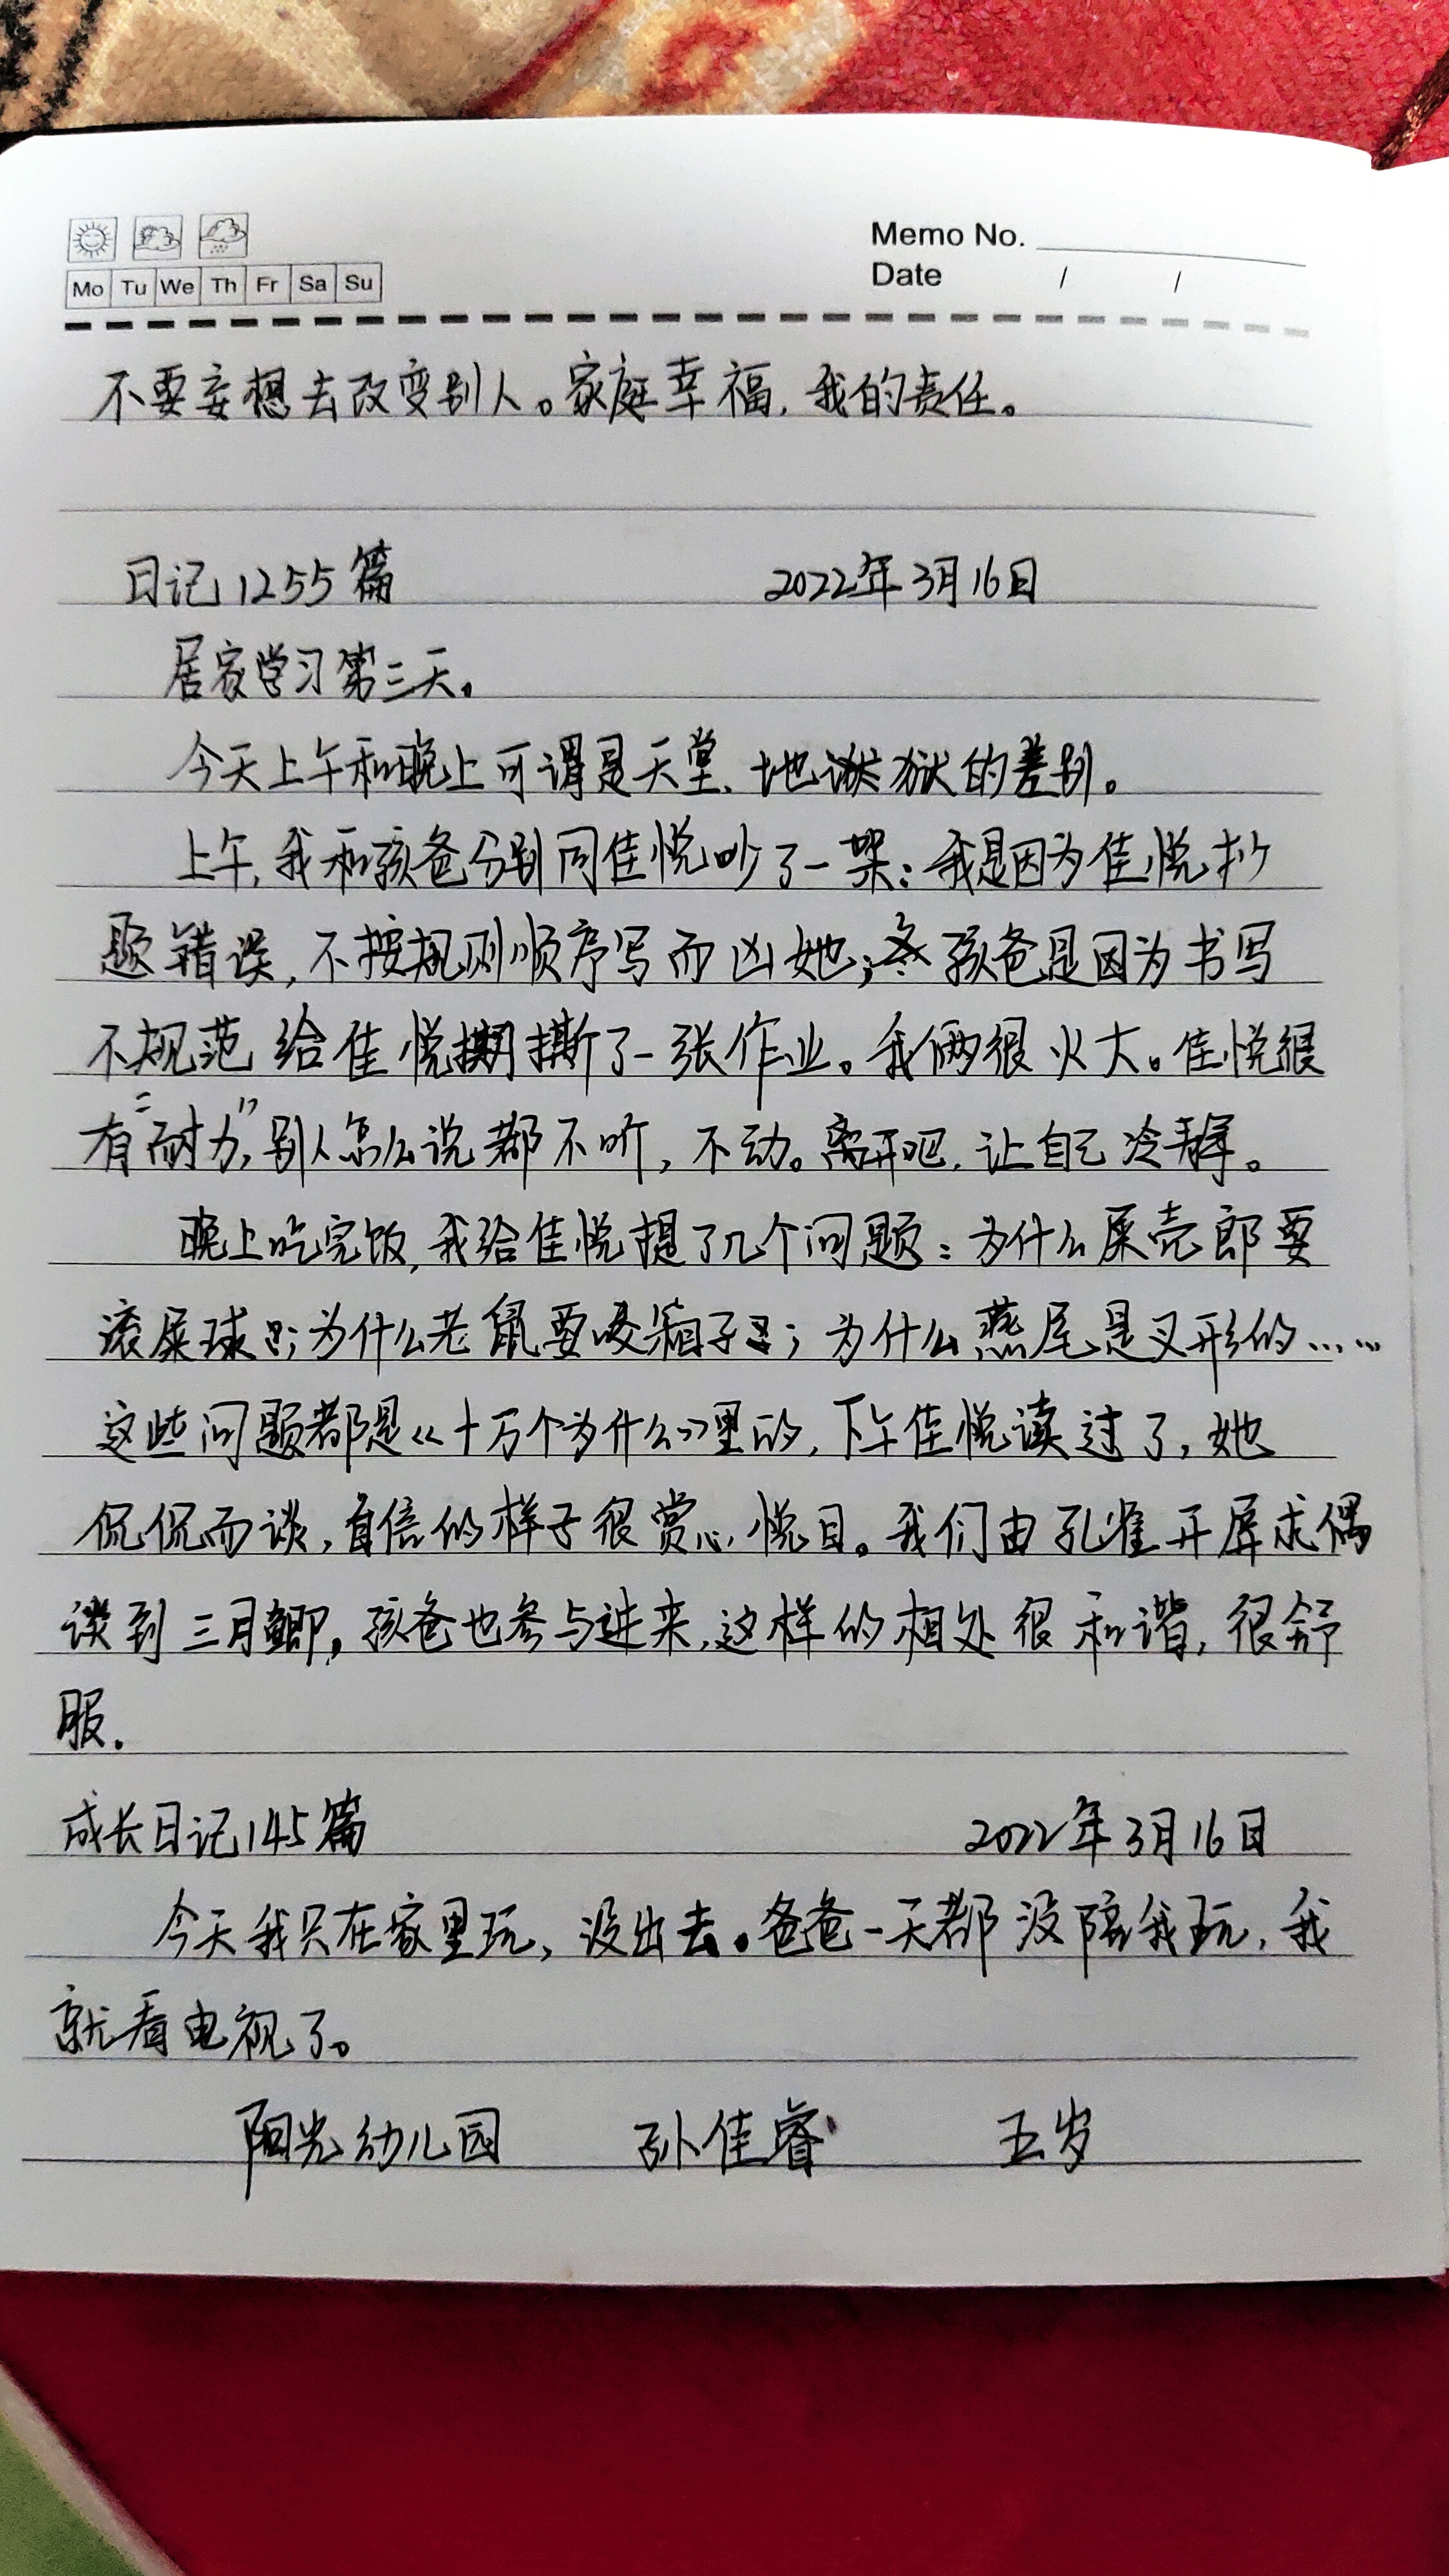 Memo No.
Mo Tu We Th Fr Sa Su
Date / /
不要妄想去改变别人。家庭幸福,我的责任。
日记1255篇 2022年3月16日
居家学习第三天。
今天上午和晚上可谓是天堂、地狱的差别。
上午,我和孩爸分别同佳悦吵了一架:我是因为佳悦抄
题错误,不按规则顺序写而凶她;孩爸是因为书写
不规范给佳悦撕了一张作业。我俩很火大。佳悦很
有“耐力”,别人怎么说都不听,不动。离开吧,让自己冷静。
晚上吃完饭,我给佳悦提了几个问题:为什么屎壳郎要
滚屎球;为什么老鼠要咬箱子;为什么燕尾是叉形的……
这些问题都是《十万个为什么》里的,下午佳悦读过了,她
侃侃而谈,自信的样子很赏心悦目。我们由孔雀开屏求偶
谈到三月鲫,孩爸也参与进来,这样的相处很和谐,很舒
服.
成长日记145篇 2022年3月16日
今天我只在家里玩,没出去。爸爸一天都没陪我玩,我
就看电视了。
阳光幼儿园 孙佳睿 五岁